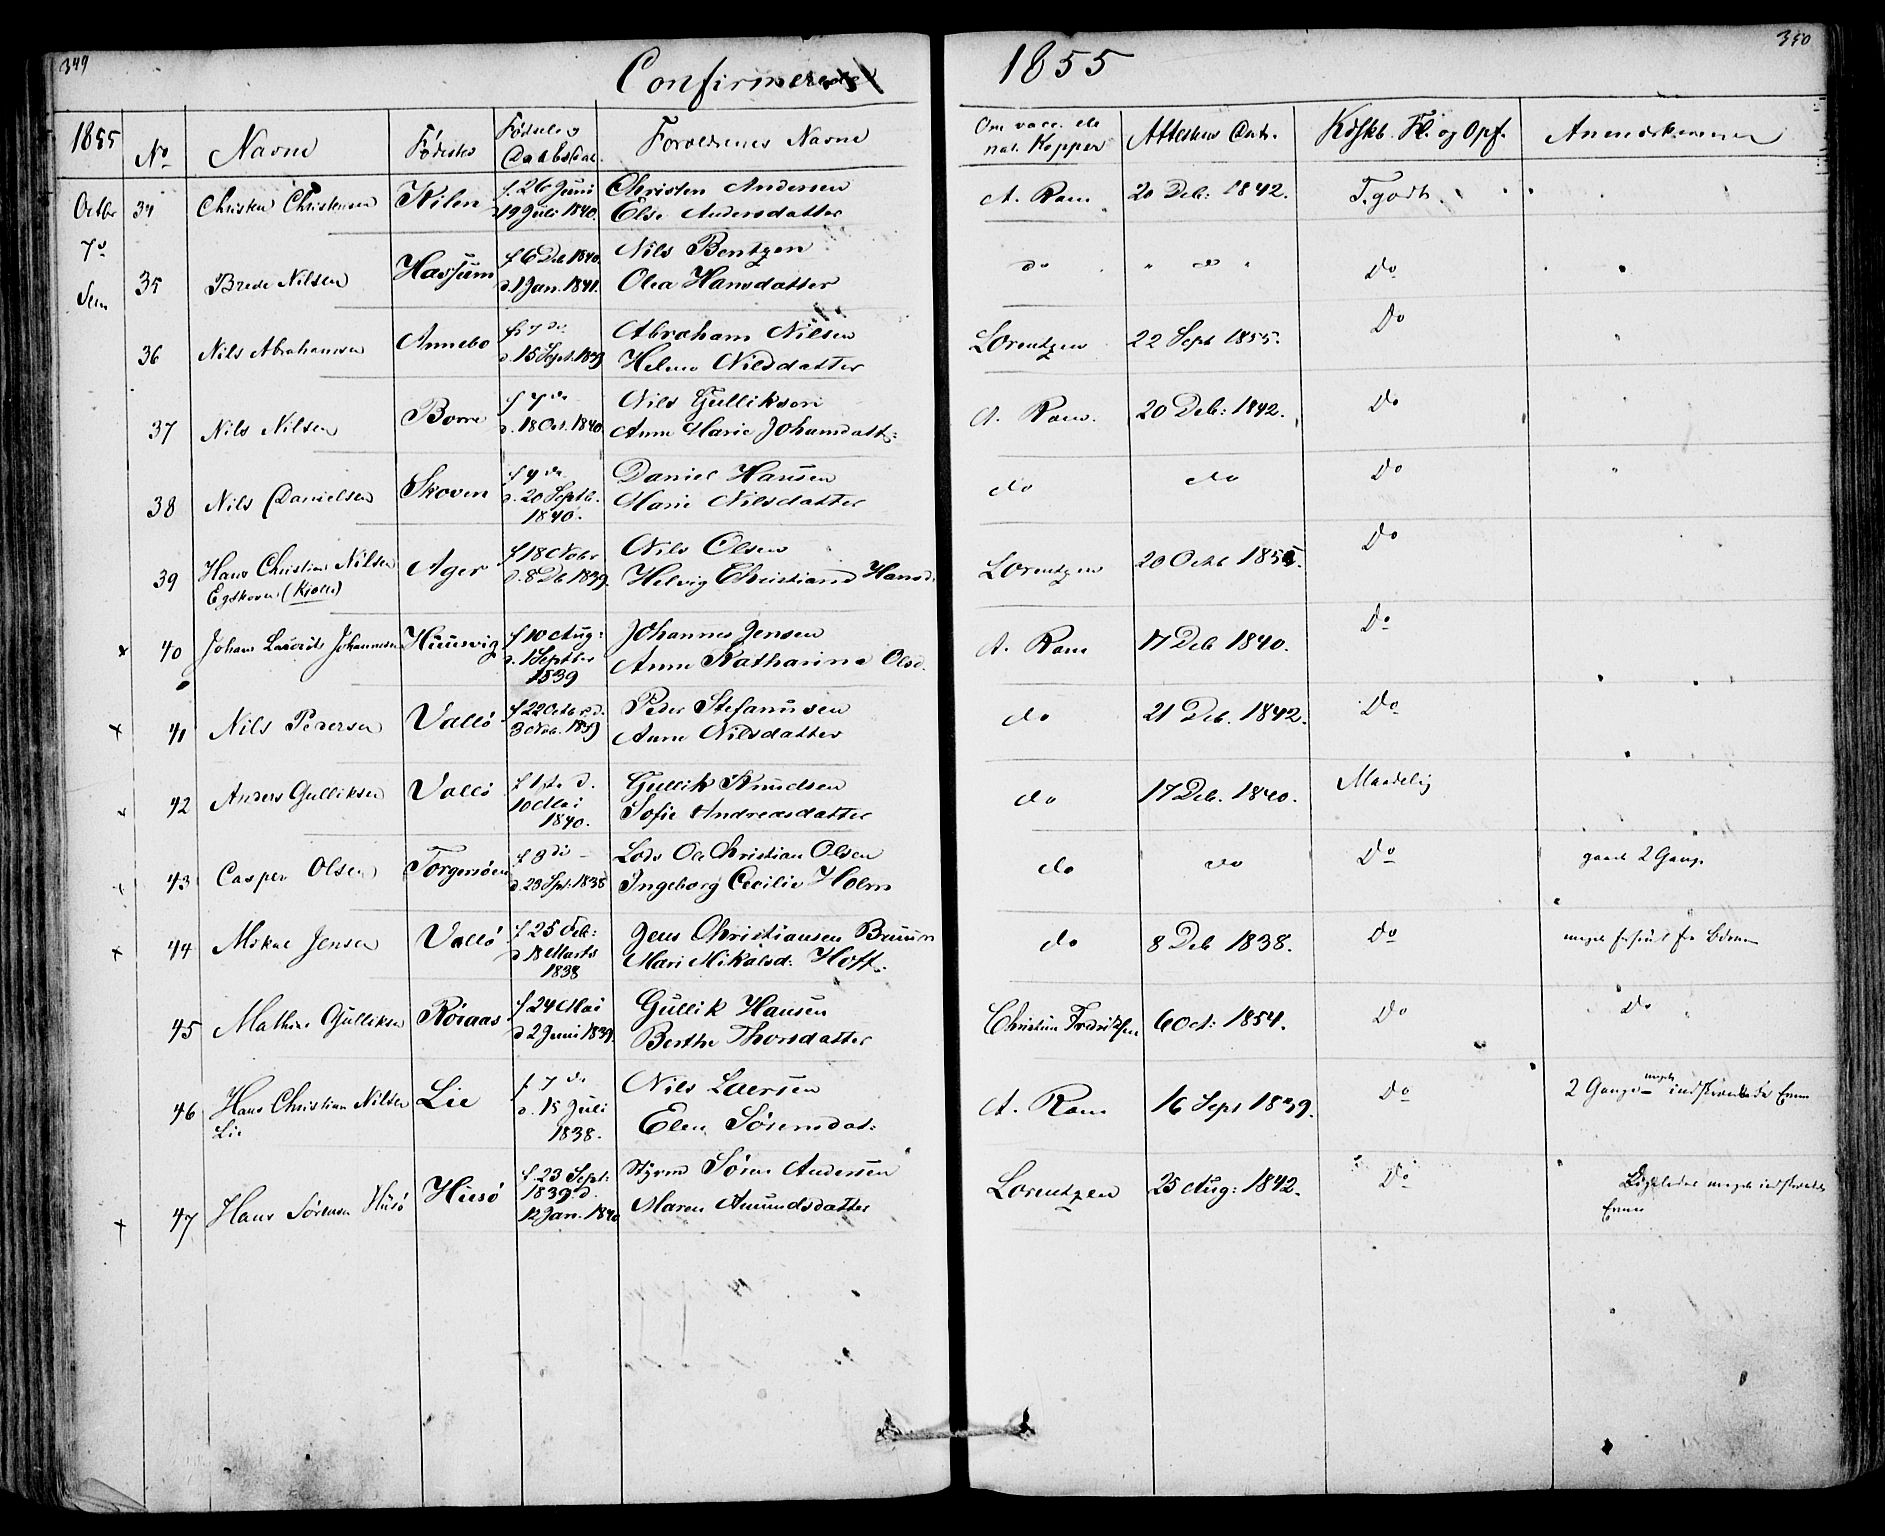 349
Confirmerede
1855
350
1855 No Navne Fødested Fødsels og Daabsdat. Forældrenes Navne Om vacc. ell. nat. Kopper Attestens Dat. Kdskb. Fl. og Opf. Anmærkninger
Octbr 34 Christen Christensen Kilen f. 26 Juni d. 19 Juli 1840. Christen Andersen Else Andersdatter A. Ram 20 Deb: 1842. T. godt
7de Sem 35 Brede Nilsen Hassum f 6 Deb 1840. d. 1 Jan. 1841. Nils Bentzen Olea Hansdatter do " do " Do
36 Nils Abrahamsen Annebo f. 7 do d. 15 Sept. 1839 Abraham Nilsen Helene Nilsdatter Lorentzen 22 Sept 1855. Do
37 Nils Nilsen Borre f 7 do d. 18 Oct. 1840 Nils Gulliksen Anne Marie Johansdatt: A. Ram. 20 Deb: 1842. Do
38 Nils Danielsen Skoven f 9 do d. 20 Septb. 1840. Daniel Hansen Marie Nilsdatter do do Do
39 Hans Christian Nilsen Egskoven (Kjølle) Ager f 18 Nobr d. 8 Db 1839. Nils Olsen Helvig Christiane Hansd. Lorentzen 20 Octb 1855. Do
x 40 Johan Lauritz Johannesen Huusvig f 10 Aug: d. 1 Septber 1839 Johannes Jensen Anne Katharina Olsd. A. Ram 17 Deb 1840. Do
x 41 Nils Pedersen Vallø f 22 Octbr d. 3 Nob. 1839 Peder Stefanusen Anne Nilsdatter do 21 Deb. 1842. Do
42 Anders Gulliksen Vallø f 1ste d. 10 Mai 1840. Gullik Knudsen Sofie Andreasdatter do 17 Deb. 1840. Maadelig
43 Casper Olsen Torgersøen f 3 di d. 23 Spt. 1838 Lods Ole Christian Olsen Ingeborg Cecilie Holm do do Do gaaet 2 Gange
x 44 Mikal Jensen Vallø f. 25 Feb: d 18 Marts 1838 Jens Christiansen Bruun Mari Mikalsd: Hoff. do 8 Deb 1838. Do meget forsømt fra Børnene
45 Mathias Gulliksen Røraas f. 24 Mai d 2 Juni 1839. Gullik Hansen Berthe Thorsdatter Christian Fredriksen 6 Oct: 1854. Do Do
46 Hans Christian Nilsen Lie Lie f. 7 de d. 15 Juli 1838. Nils Larsen Elen Sørensdat: A. Ram 16 Sept 1839. Do 2 Gange meget indskrænkede Evner
x 47 Hans Sørensen Husø Husø f. 23 Sept: 1839 d. 12 Jan. 1840 Styrm Søren Andersen Maren Amundsdatter Lorentzen 25 Aug: 1842. Do Ligeledes meget indskrænkede Evner